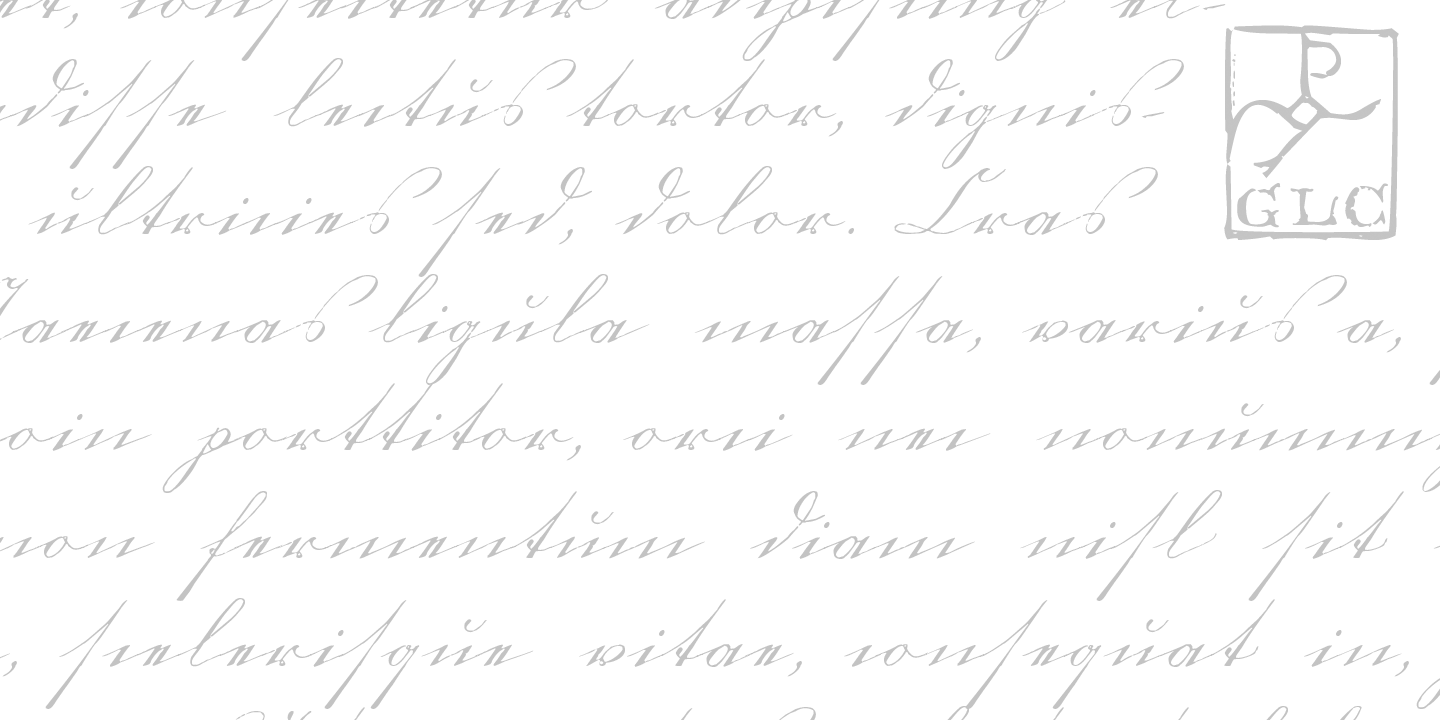 et, consectetur adipiscing el-
disse lectus tortor, dignis-
ultricies sed, dolor. Cras
Maecenas ligula massa, varius a,
oin porttitor, orci nec nonummy
non fermentum diam nisl sit
, scelerisque vitae, consequat in,
P
GLC